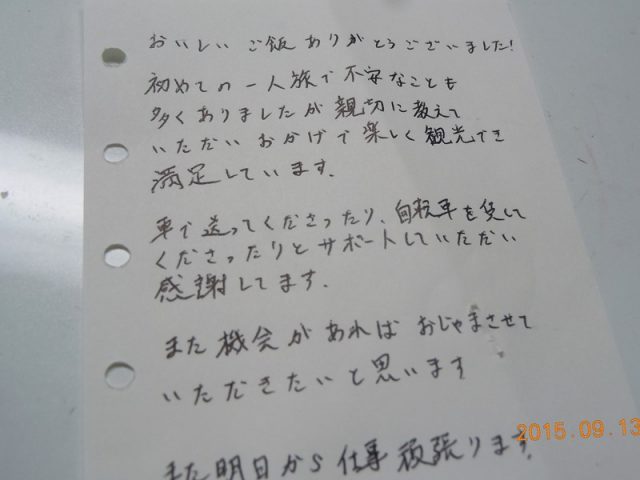 おいしい ご飯 ありがとうございました!
初めての一人旅で不安なことも
多くありましたが親切に教えて
いただいおかげで楽しく観光でき
満足しています.
車で送ってくださったり、自転車を貸して
くださったりとサポートしていただい
感謝してます.
また機会があれば おじゃまさせて
いただきたいと思います
また明日から仕事頑張ります.
2015.09.13